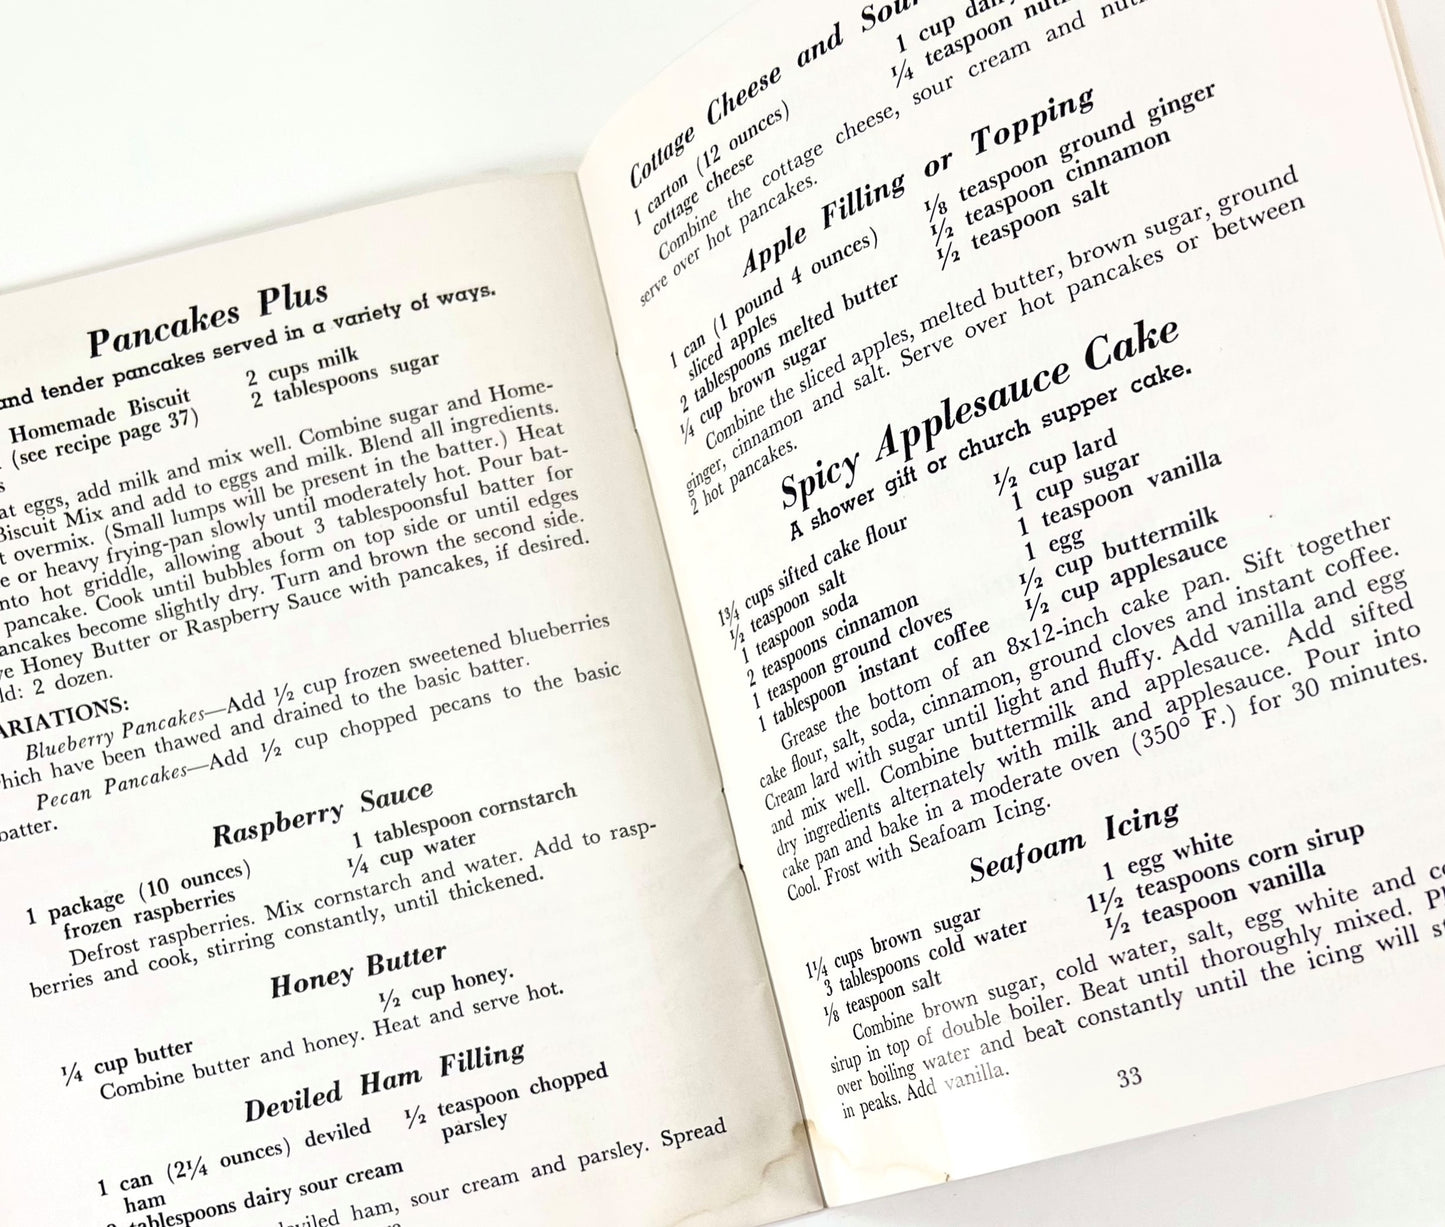 Pancakes Plus
and tender pancakes served in a variety of ways.
Homemade Biscuit
(see recipe page 37)
2 cups milk
2 tablespoons sugar
at eggs, add milk and mix well. Combine sugar and Home-
Biscuit Mix and add to eggs and milk. Blend all ingredients.
t overmix. (Small lumps will be present in the batter.) Heat
e or heavy frying-pan slowly until moderately hot. Pour bat-
nto hot griddle, allowing about 3 tablespoonsful batter for
pancake. Cook until bubbles form on top side or until edges
ancakes become slightly dry. Turn and brown the second side.
ve Honey Butter or Raspberry Sauce with pancakes, if desired.
ld: 2 dozen.
ARIATIONS:
Blueberry Pancakes—Add 1/2 cup frozen sweetened blueberries
hich have been thawed and drained to the basic batter.
Pecan Pancakes—Add 1/2 cup chopped pecans to the basic
batter.
Raspberry Sauce
1 package (10 ounces)
frozen raspberries
1 tablespoon cornstarch
1/4 cup water
Defrost raspberries. Mix cornstarch and water. Add to rasp-
berries and cook, stirring constantly, until thickened.
Honey Butter
1/4 cup butter
1/2 cup honey.
Combine butter and honey. Heat and serve hot.
Deviled Ham Filling
1 can (2 1/4 ounces) deviled
ham
tablespoons dairy sour cream
1/2 teaspoon chopped
parsley
deviled ham, sour cream and parsley. Spread
Cottage Cheese and Sour
1 carton (12 ounces)
cottage cheese
1 cup dairy
1/4 teaspoon
Combine the cottage cheese, sour cream and
serve over hot pancakes.
Apple Filling or Topping
1 can (1 pound 4 ounces)
sliced apples
2 tablespoons melted butter
1/4 cup brown sugar
1/8 teaspoon ground ginger
1/2 teaspoon cinnamon
1/2 teaspoon salt
Combine the sliced apples, melted butter, brown sugar, ground
ginger, cinnamon and salt. Serve over hot pancakes or between
2 hot pancakes.
Spicy Applesauce Cake
A shower gift or church supper cake.
1 3/4 cups sifted cake flour
1/2 teaspoon salt
1 teaspoon soda
2 teaspoons cinnamon
1 teaspoon ground cloves
1 tablespoon instant coffee
1/2 cup lard
1 cup sugar
1 teaspoon vanilla
1 egg
1/2 cup buttermilk
1/2 cup applesauce
Grease the bottom of an 8x12-inch cake pan. Sift together
cake flour, salt, soda, cinnamon, ground cloves and instant coffee.
Cream lard with sugar until light and fluffy. Add vanilla and egg
and mix well. Combine buttermilk and applesauce. Add sifted
dry ingredients alternately with milk and applesauce. Pour into
cake pan and bake in a moderate oven (350° F.) for 30 minutes.
Cool. Frost with Seafoam Icing.
Seafoam Icing
1 1/4 cups brown sugar
3 tablespoons cold water
1/8 teaspoon salt
1 egg white
1 1/2 teaspoons corn sirup
1/2 teaspoon vanilla
Combine brown sugar, cold water, salt, egg white and
sirup in top of double boiler. Beat until thoroughly mixed.
over boiling water and beat constantly until the icing will
in peaks. Add vanilla.
33